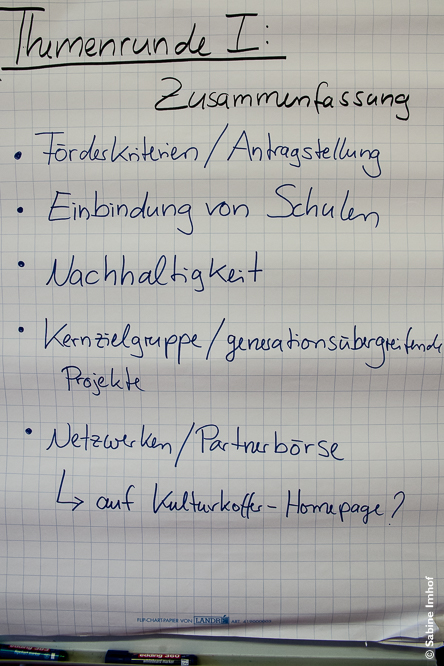 Themenrunde I:
Zusammenfassung
• Förderkriterien / Antragstellung
• Einbindung von Schulen
• Nachhaltigkeit
• Kernzielgruppe / generationsübergreifende
Projekte
• Netzwerken / Partnerbörse
↳ auf Kulturkoffer-Homepage?
FLIPCHART-PAPIER VON LANDRÉ
© Sabine Imhof